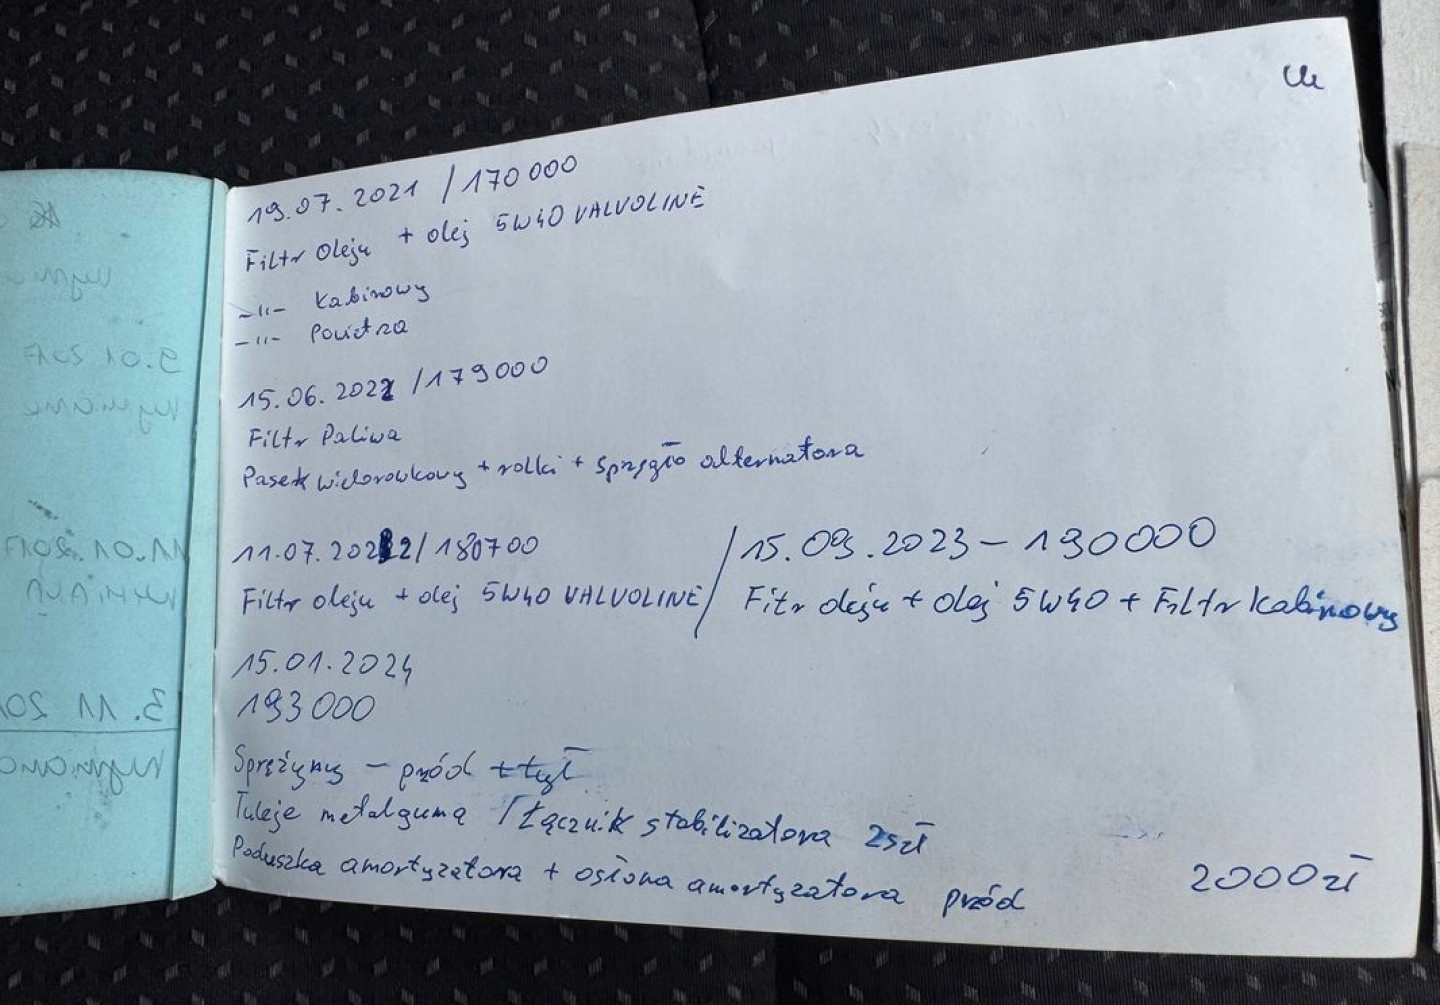 19.07.2021 / 170 000
Filtr oleju + olej 5W40 VALVOLINE
-"- Kabinowy
-"- Powietrza
15.06.2022 / 179000
Filtr Paliwa
Pasek wielorowkowy + rolki + sprzęgło alternatora
11.07.2022 / 180700
Filtr oleju + olej 5W40 VALVOLINE
/ 15.09.2023 - 190000
Fitr oleju + olej 5W40 + Filtr kabinowy
15.01.2024
193 000
Sprężyny - przód + tył
Tuleje metalguma / Łącznik stabilizatora 2szt
Poduszka amortyzatora + osłona amortyzatora przód
2000 zł